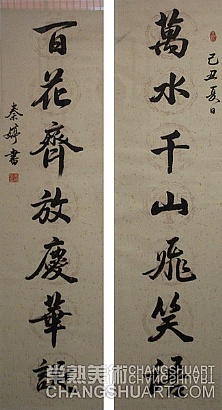 己丑夏日
萬水千山飛笑
百花齊放慶華誕
秦婷書
常熟美術 CHANGSHUART
CHANGSHUART.COM